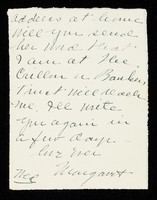 address at home
will you send
her word that
I am at the
Cullen n Banker,
trust will reach
me. I'll write
you again in
a few days.
Luv Ever
Margaret